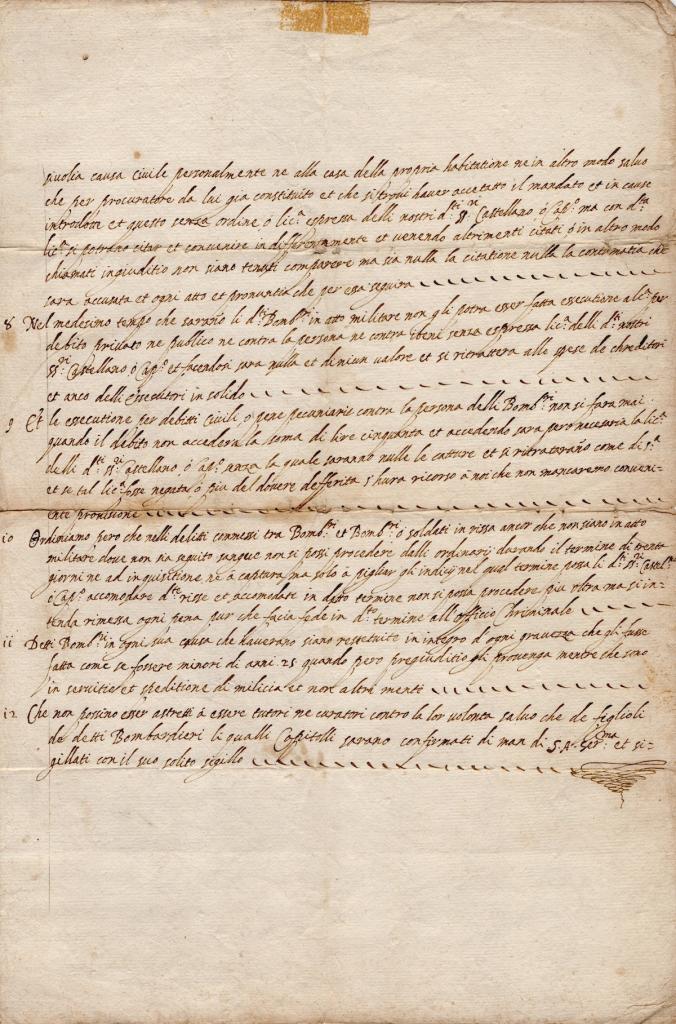 sivolia causa civile personalmente ne alla casa della propria habitatione ne in altro modo salvo
che per procuratore da lui gia constituito et che si trovi haver accetatto il mandato et in cause
introdotte et questo senza ordine ó lic.ª espressa delli nostri d.ti SS.ri Castellano ó Cap.º ma con d.ta
lic.ª si potrano citar et convenire indifferentemente et venendo altrimenti citati ó in altro modo
chiamati in giuditio non siano tenuti comparere ma sia nulla la citatione nulla la contumatia che
sara accusata et ogni atto et pronuntia che per esa seguira
8 Nel medesimo tempo che sarano li d.ti Bomb.ri in atto militare non gli potra esser fatta essecutione al.ª per
debito privato ne publico ne contra la persona ne contra i beni senza espressa lic.ª delli d.ti nostri
SS.ri Castellano ó Cap.º et facendosi sara nulla et di niun valore et si ritrattera alle spese de chreditori
et anco delli essecutori in solido
9 Et le essecutione per debiti civili ó pene pecuniarie contra la persona delli Bomb.ri non si fara mai
quando il debito non accedera la soma di lire cinquanta et accedendo sara pero necesaria la lic.ª
delli d.ti SS.ri Castellano ó Cap.º senza la quale saranno nulle le catture et si ritrattarano come di s.ª
et se tal lic.ª fosse negata ó piu del dovere defferita s'hura ricorso á noi che non mancaremo conveni-
ente provisione
10 Ordiniamo pero che nelli delitti commessi tra Bomb.ri et Bomb.ri ó soldati in rissa ancor che non siano in atto
militare dove non sia seguito sangue non si possi procedere dalli ordinarij durando il termine di trenta
giorni ne ad inquisitione ne á captura ma solo á pigliar gl'indicij nel qual termine possa li d.ti SS.ri Castell.º
ó Cap.º accomodare d.te risse et acomodate in detto termine non si possa procedere piu oltra ma si in-
tenda rimessa ogni pena pur che facia fede in d.to termine all'officio Chriminale
11 Detti Bomb.ri in ogni sua causa che haverano siano restetuite in integro d'ogni gravezza che gli fusse
fatta come se fossere minori di anni 25 quando pero pregiuditio gli provenga mentre che sono
in servitio et speditione di milicia et non altri menti
12 Che non possino esser astretti á essere tutori ne curatori contro la lor volonta salvo che de figlioli
de detti Bombardieri li qualli Capitoli sarano confirmati di man di S. A. Ser.ma et si-
gillati con il suo solito sigillo